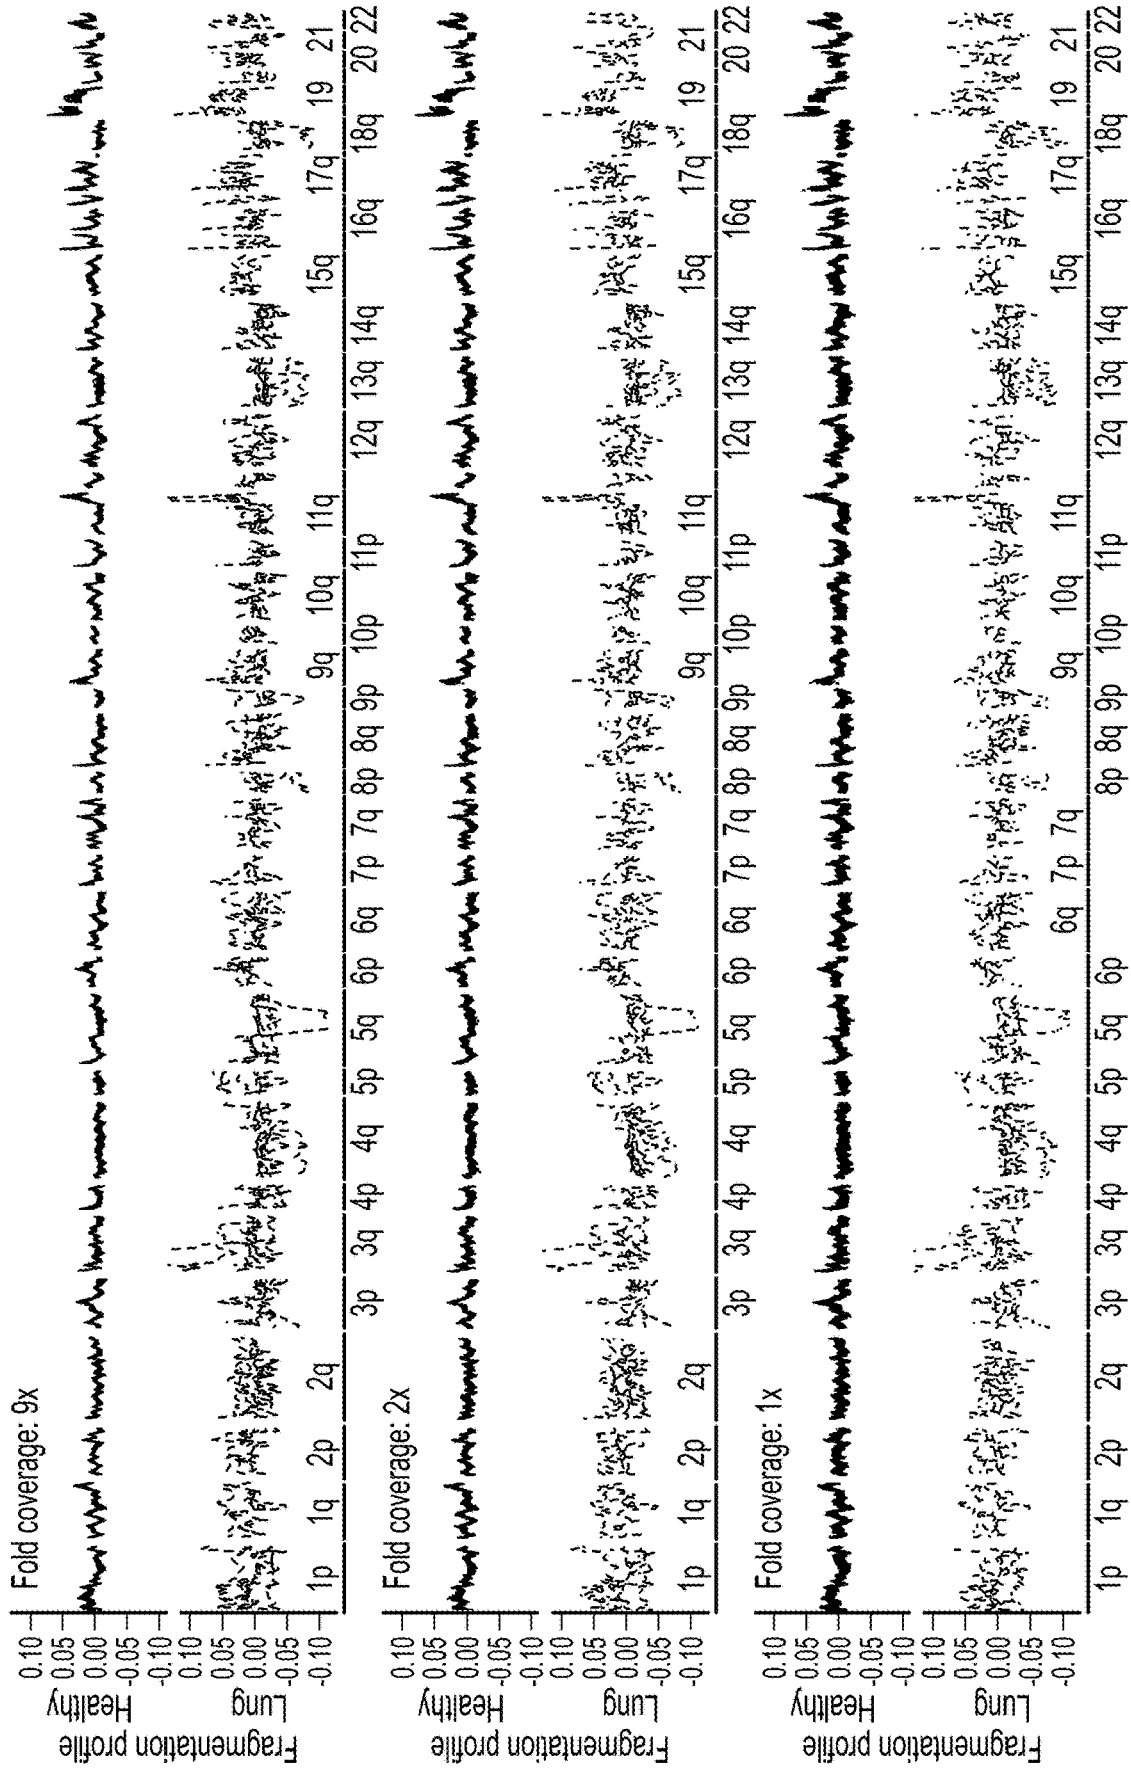 Fold coverage: 9x
Fragmentation profile
Healthy
0.10
0.05
0.00
-0.05
-0.10
Lung
0.10
0.05
0.00
-0.05
-0.10
1p 1q 2p 2q 3p 3q 4p 4q 5p 5q 6p 6q 7p 7q 8p 8q 9p 9q 10p 10q 11p 11q 12q 13q 14q 15q 16q 17q 18q 19 20 21 22
Fold coverage: 2x
Fragmentation profile
Healthy
0.10
0.05
0.00
-0.05
-0.10
Lung
0.10
0.05
0.00
-0.05
-0.10
1p 1q 2p 2q 3p 3q 4p 4q 5p 5q 6p 6q 7p 7q 8p 8q 9p 9q 10p 10q 11p 11q 12q 13q 14q 15q 16q 17q 18q 19 20 21 22
Fold coverage: 1x
Fragmentation profile
Healthy
0.10
0.05
0.00
-0.05
-0.10
Lung
0.10
0.05
0.00
-0.05
-0.10
1p 1q 2p 2q 3p 3q 4p 4q 5p 5q 6p 6q 7p 7q 8p 8q 9p 9q 10p 10q 11p 11q 12q 13q 14q 15q 16q 17q 18q 19 20 21 22